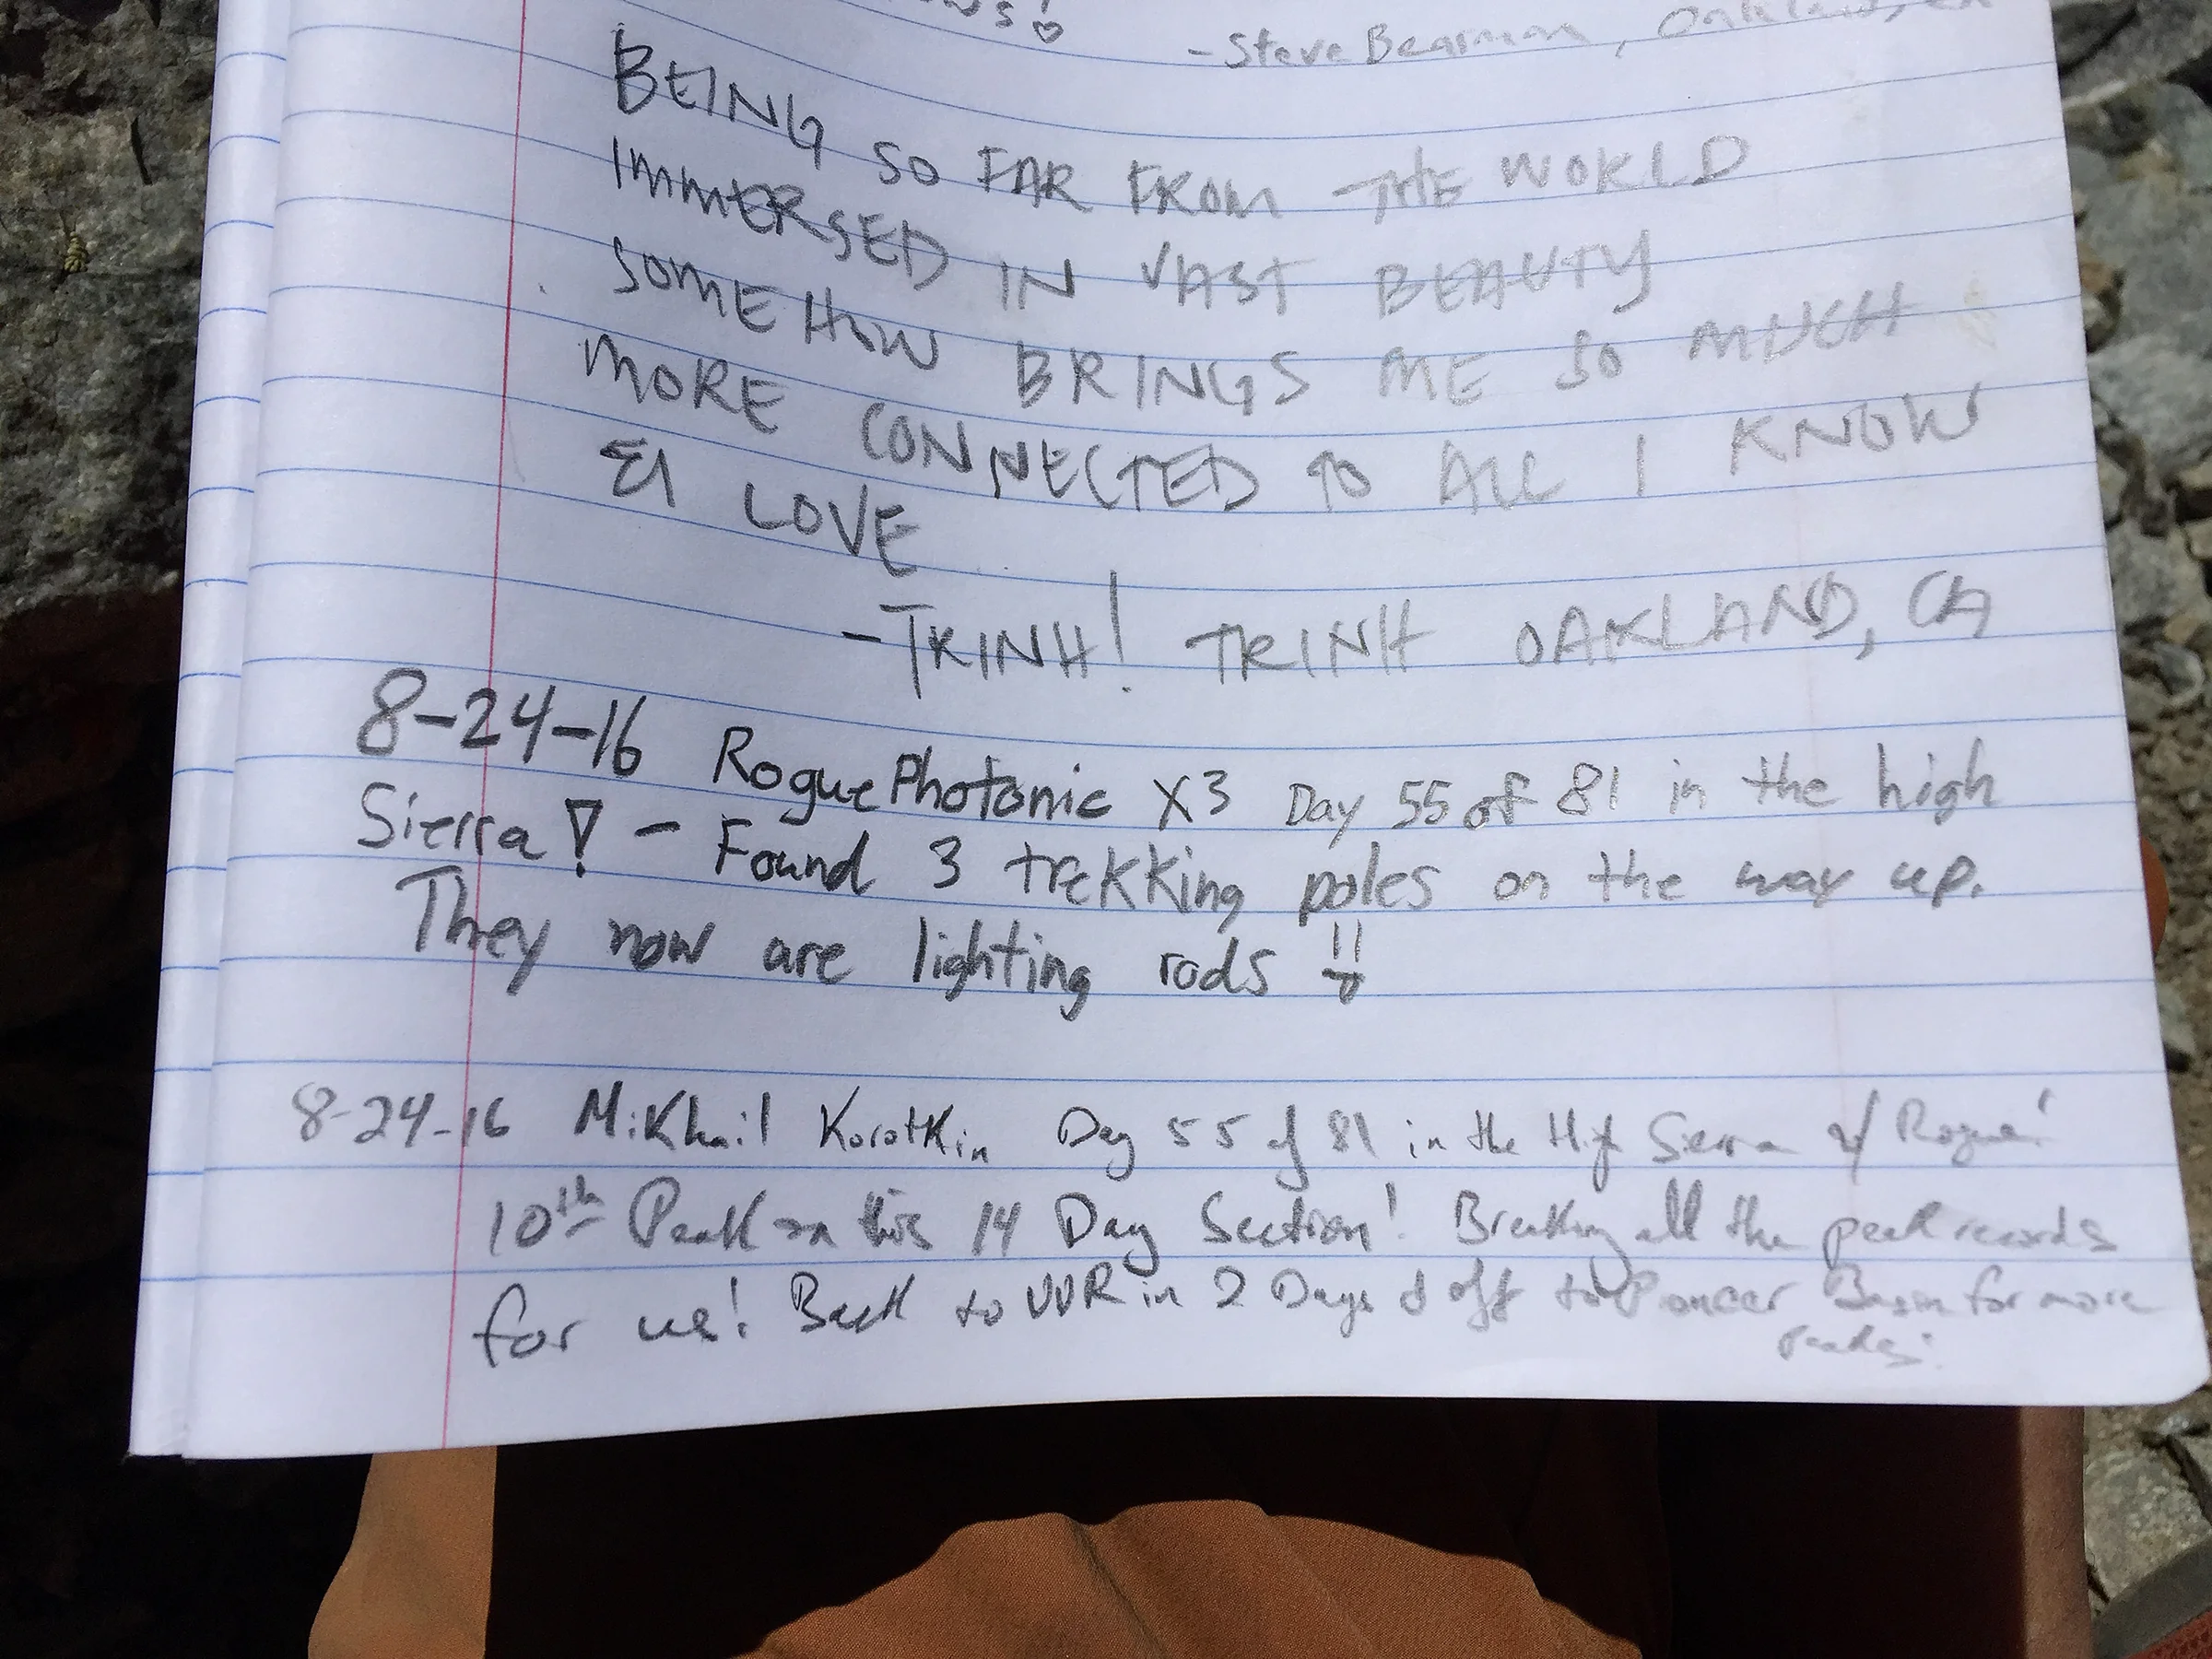 - Steve Bearman, Oakland, CA
BEING SO FAR FROM THE WORLD
IMMERSED IN VAST BEAUTY
SOMEHOW BRINGS ME SO MUCH
MORE CONNECTED TO ALL I KNOW
& LOVE
- TRINH! TRINH OAKLAND, CA
8-24-16 Rogue Photonic X3 Day 55 of 81 in the high
Sierra! - Found 3 trekking poles on the way up.
They now are lighting rods !!
8-24-16 Mikhail Korotkin Day 55 of 81 in the High Sierra w/ Rogue!
10th Peak on this 14 Day Section! Breaking all the peak records
for us! Back to VVR in 2 Days & off to Pioneer Basin for more
Peaks.